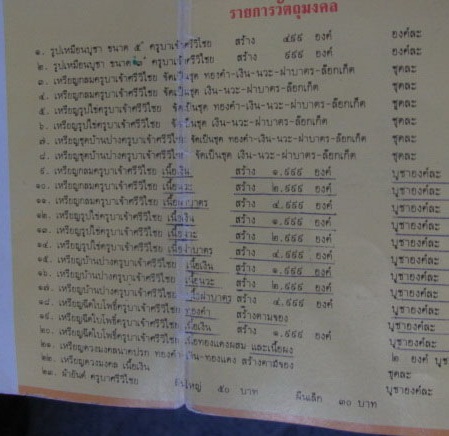 รายการวัตถุมงคล
๑. รูปเหมือนบูชา ขนาด ๕" ครูบาเจ้าศรีวิไชย สร้าง ๔๙๙ องค์ องค์ละ
๒. รูปเหมือนบูชา ขนาด ครูบาเจ้าศรีวิไชย สร้าง ๙๙๙ องค์ องค์ละ
๓. เหรียญกลมครูบาเจ้าศรีวิไชย จัดเป็นชุด ทองคำ-เงิน-นวะ-ฝาบาตร-ล๊อกเก็ต ชุดละ
๔. เหรียญกลมครูบาเจ้าศรีวิไชย จัดเป็นชุด เงิน-นวะ-ฝาบาตร-ล๊อกเก็ต ชุดละ
๕. เหรียญรูปไข่ครูบาเจ้าศรีวิไชย จัดเป็นชุด ทองคำ-เงิน-นวะ-ฝาบาตร-ล๊อกเก็ต ชุดละ
๖. เหรียญรูปไข่ครูบาเจ้าศรีวิไชย จัดเป็นชุด เงิน-นวะ-ฝาบาตร-ล๊อกเก็ต ชุดละ
๗. เหรียญชุดบ้านปางครูบาเจ้าศรีวิไชย จัดเป็นชุด ทองคำ-เงิน-นวะ-ฝาบาตร-ล๊อกเก็ต ชุดละ
๘. เหรียญชุดบ้านปางครูบาเจ้าศรีวิไชย จัดเป็นชุด เงิน-นวะ-ฝาบาตร-ล๊อกเก็ต ชุดละ
๙. เหรียญกลมครูบาเจ้าศรีวิไชย เนื้อเงิน สร้าง ๑,๙๙๙ องค์ บูชาองค์ละ
๑๐. เหรียญกลมครูบาเจ้าศรีวิไชย เนื้อนวะ สร้าง ๒,๙๙๙ องค์ บูชาองค์ละ
๑๑. เหรียญกลมครูบาเจ้าศรีวิไชย เนื้อฝาบาตร สร้าง ๔,๙๙๙ องค์ บูชาองค์ละ
๑๒. เหรียญรูปไข่ครูบาเจ้าศรีวิไชย เนื้อเงิน สร้าง ๑,๙๙๙ องค์ บูชาองค์ละ
๑๓. เหรียญรูปไข่ครูบาเจ้าศรีวิไชย เนื้อนวะ สร้าง ๒,๙๙๙ องค์ บูชาองค์ละ
๑๔. เหรียญรูปไข่ครูบาเจ้าศรีวิไชย เนื้อฝาบาตร สร้าง ๔,๙๙๙ องค์ บูชาองค์ละ
๑๕. เหรียญบ้านปางครูบาเจ้าศรีวิไชย เนื้อเงิน สร้าง ๑,๙๙๙ องค์ บูชาองค์ละ
๑๖. เหรียญบ้านปางครูบาเจ้าศรีวิไชย เนื้อนวะ สร้าง ๒,๙๙๙ องค์ บูชาองค์ละ
๑๗. เหรียญบ้านปางครูบาเจ้าศรีวิไชย เนื้อฝาบาตร สร้าง ๔,๙๙๙ องค์ บูชาองค์ละ
๑๘. เหรียญฉีดใบโพธิ์ครูบาเจ้าศรีวิไชย ทองคำ สร้างตามจอง บูชาองค์ละ
๑๙. เหรียญฉีดใบโพธิ์ครูบาเจ้าศรีวิไชย เนื้อเงิน สร้าง ๑,๙๙๙ องค์ บูชาองค์ละ
๒๐. เหรียญฉีดใบโพธิ์ครูบาเจ้าศรีวิไชย เนื้อทองแดงผสม และเนื้อผง บูชาองค์ละ
๒๑. เหรียญดวงมงคลนาคปรก ทองคำ-เงิน-ทองแดง สร้างตามจอง ๒ องค์
๒๒. เหรียญดวงมงคล เนื้อเงิน ชุดละ
๒๓. ผ้ายันต์ ครูบาศรีวิไชย ผืนใหญ่ ๕๐ บาท ผืนเล็ก ๓๐ บาท บูชาองค์ละ